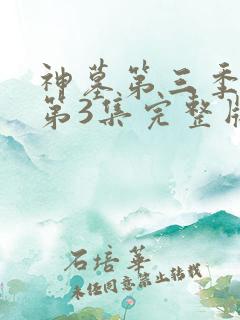 神墓第三季
第3集完整版
石培华
未经同意禁止转载